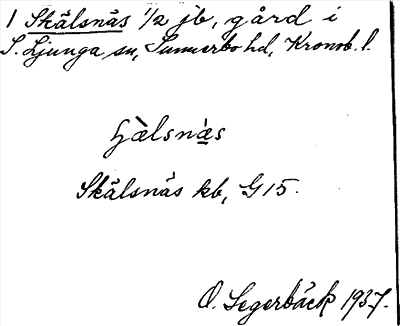 1 Skälsnäs 1/2 jb, gård i
S. Ljunga sn, Sunnerbo hd, Kronob. l.
Skälsnäs kb, G 15.
O. Segerbäck 1937.